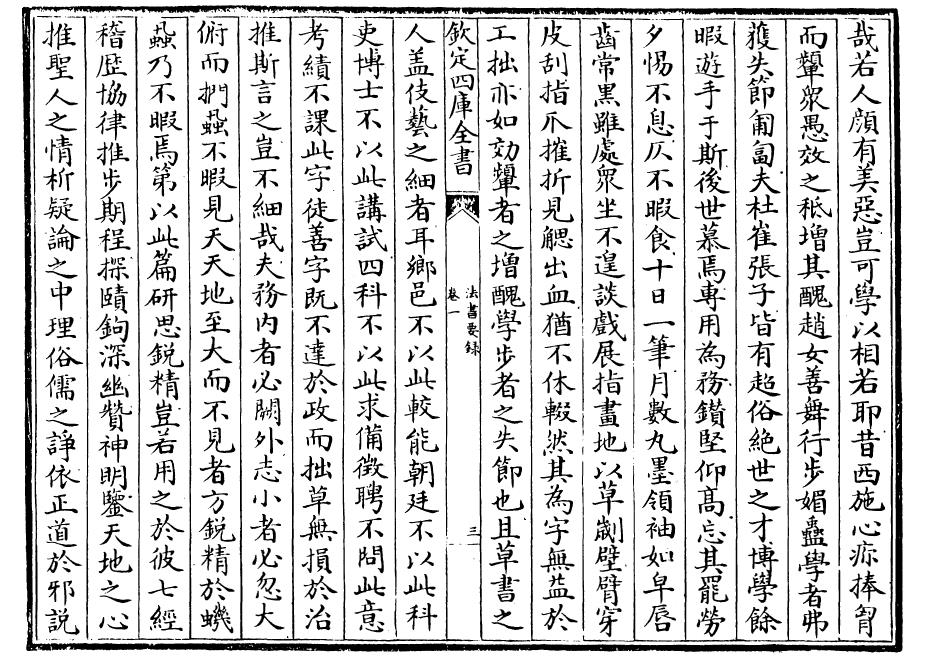 哉若人顔有美惡豈可學以相若耶昔西施心㾕捧胷
而顰衆愚效之秪増其醜趙女善舞行步媚蠱學者弗
獲失節匍匐夫杜崔張子皆有超俗絶世之才博學餘
暇遊手于斯後世慕焉専用為務鑚堅仰髙忘其罷勞
夕惕不息仄不暇食十日一筆月數丸墨領袖如皁唇
齒常黒雖處衆坐不遑談戲展指畫地以草劌壁臂穿
皮刮指爪摧折見䚡出血猶不休輟然其為字無益於
工拙亦如効顰者之増醜學步者之失節也且草書之
欽定四庫全書
法書要録
卷一
三
人盖伎藝之細者耳鄉邑不以此較能朝廷不以此科
吏博士不以此講試四科不以此求備徴聘不問此意
考績不課此字徒善字既不達於政而拙草無損於治
推斯言之豈不細哉夫務内者必闕外志小者必忽大
俯而捫蝨不暇見天天地至大而不見者方鋭精於蟣
蝨乃不暇焉第以此篇研思鋭精豈若用之於彼七經
稽歴協律推步期程探賾鉤深幽贊神明鑒天地之心
推聖人之情析疑論之中理俗儒之諍依正道於邪説